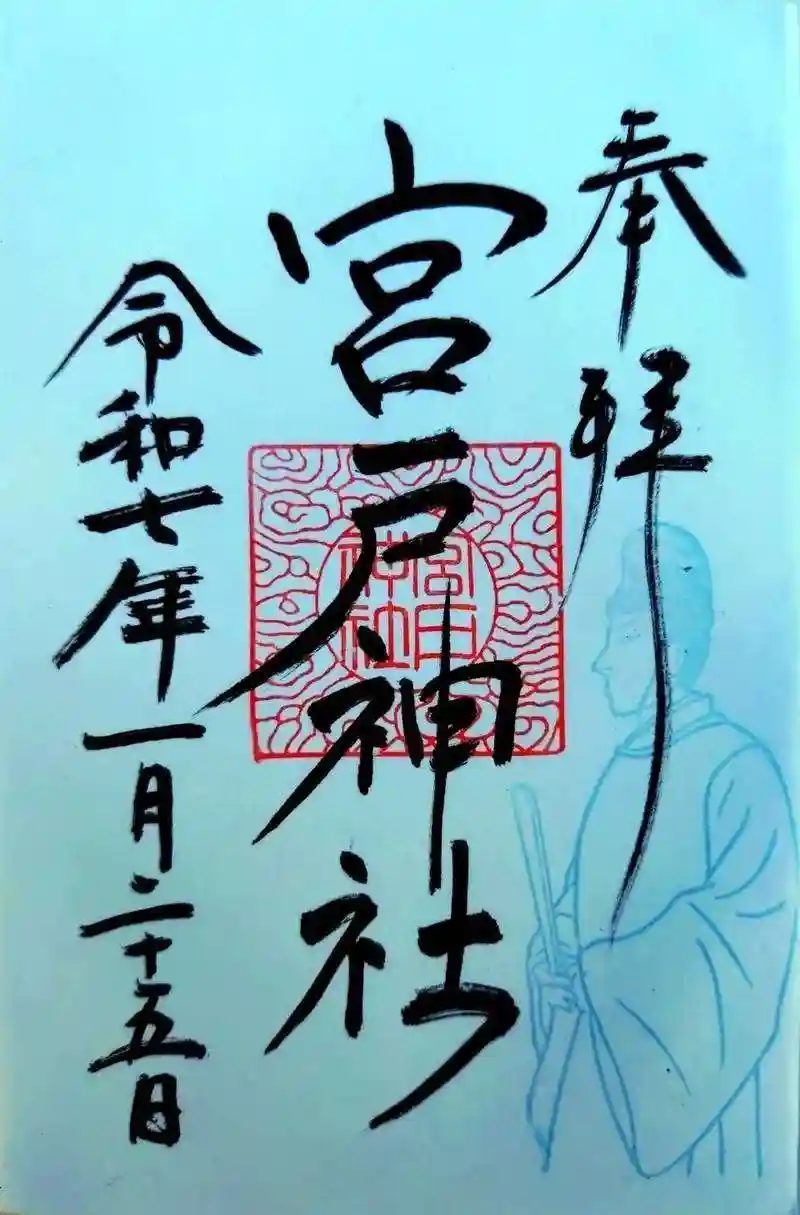 奉拝
宮戸神社
宮戸
神社
令和七年一月二十五日